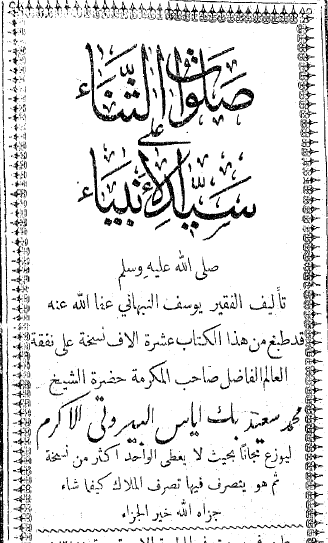 صلوات الثناء
على
سيد الأنبياء
صلى الله عليه وسلم
تأليف الفقير يوسف النبهاني عفا الله عنه
قد طبع من هذا الكتاب عشرة الاف نسخة على نفقة
العالم الفاضل صاحب المكرمة حضرة الشيخ
محمد سعيد بك اياس البيروتي الاكرم
ليوزع مجانًا بحيث لا يعطى الواحد اكثر من نسخة
ثم هو يتصرف فيها تصرف الملاك كيفما شاء
جزاه الله خير الجزاء